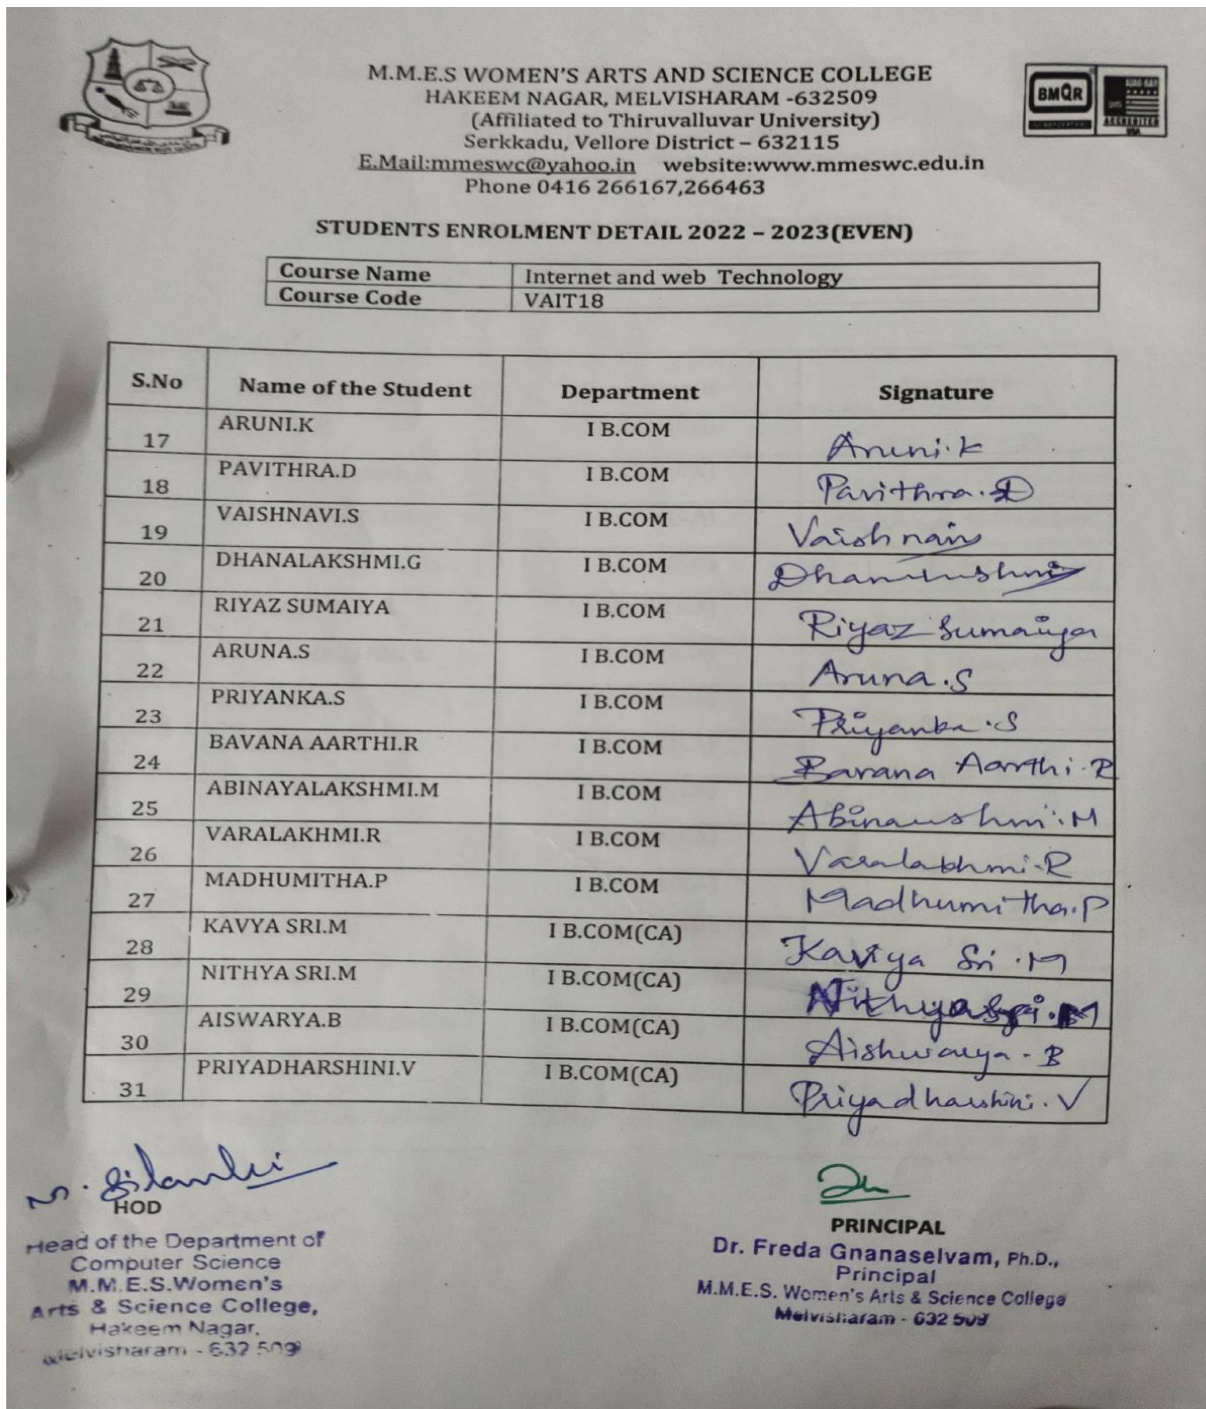 M.M.E.S WOMEN'S ARTS AND SCIENCE COLLEGE
HAKEEM NAGAR, MELVISHARAM -632509
(Affiliated to Thiruvalluvar University)
Serkkadu, Vellore District – 632115
E.Mail:mmeswc@yahoo.in website:www.mmeswc.edu.in
Phone 0416 266167,266463
BMQR
ACCREDITED
STUDENTS ENROLMENT DETAIL 2022 – 2023(EVEN)
Course Name Internet and web Technology
Course Code VAIT18
S.No Name of the Student Department Signature
17 ARUNI.K I B.COM Aruni.k
18 PAVITHRA.D I B.COM Pavithra.D
19 VAISHNAVI.S I B.COM Vaishnavi
20 DHANALAKSHMI.G I B.COM
21 RIYAZ SUMAIYA I B.COM Riyaz Sumaiya
22 ARUNA.S I B.COM Aruna.S
23 PRIYANKA.S I B.COM Priyanka.S
24 BAVANA AARTHI.R I B.COM Bavana Aarthi.R
25 ABINAYALAKSHMI.M I B.COM
26 VARALAKHMI.R I B.COM Varalakhmi.R
27 MADHUMITHA.P I B.COM Madhumitha.P
28 KAVYA SRI.M I B.COM(CA) Kaviya Sri.M
29 NITHYA SRI.M I B.COM(CA) Nithyasri.M
30 AISWARYA.B I B.COM(CA) Aishwarya-B
31 PRIYADHARSHINI.V I B.COM(CA) Priyadharshini.V
HOD
Head of the Department of
Computer Science
M.M.E.S.Women's
Arts & Science College,
Hakeem Nagar,
Melvisharam - 632 509
PRINCIPAL
Dr. Freda Gnanaselvam, Ph.D.,
Principal
M.M.E.S. Women's Arts & Science College
Melvisharam - 632 509